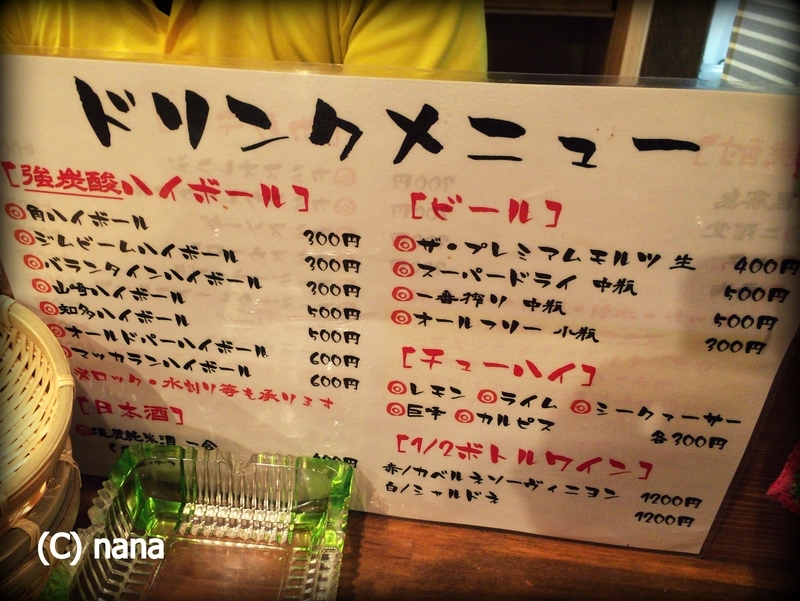 ドリンクメニュー
[強炭酸ハイボール]
◎角ハイボール 300円
◎ジムビームハイボール 300円
◎バランタインハイボール 300円
◎山崎ハイボール 500円
◎知多ハイボール 500円
◎オールドパーハイボール 600円
◎マッカランハイボール 600円
※ロック・水割り等も承ります
[日本酒]
純米酒 一合
[ビール]
◎ザ・プレミアムモルツ 生 400円
◎スーパードライ 中瓶 500円
◎一番搾り 中瓶 500円
◎オールフリー 小瓶 300円
[チューハイ]
◎レモン ◎ライム ◎シークァーサー
◎巨峰 ◎カルピス 各300円
[1/2ボトルワイン]
赤/カベルネソーヴィニヨン 1200円
白/シャルドネ 1200円
(C) nana